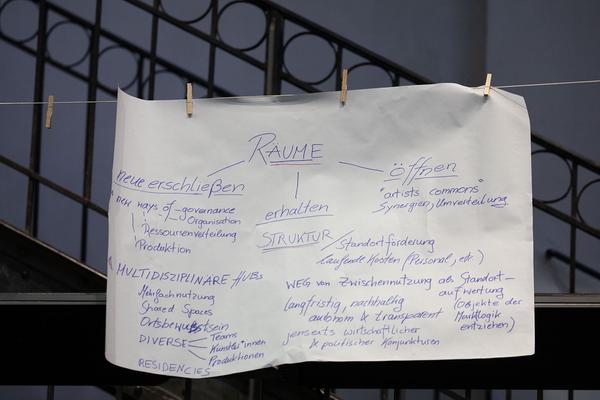 RÄUME
neue erschließen
new ways of - governance
- Organisation
Ressourcenverteilung
Produktion
MULTIDISZIPLINÄRE HUBs
Mehrfachnutzung
Shared Spaces
Ortsbewußtsein
DIVERSE
Teams
Künstler*innen
Produktionen
RESIDENCIES
erhalten
STRUKTUR
Standortförderung
laufende Kosten (Personal, etc.)
WEG von Zwischennutzung als Standort-
aufwertung
langfristig, nachhaltig
(Objekte der
autonom & transparent
Marktlogik
entziehen)
jenseits wirtschaftlicher
& politischer Konjunkturen
öffnen
"artists commons"
Synergien, Umverteilung